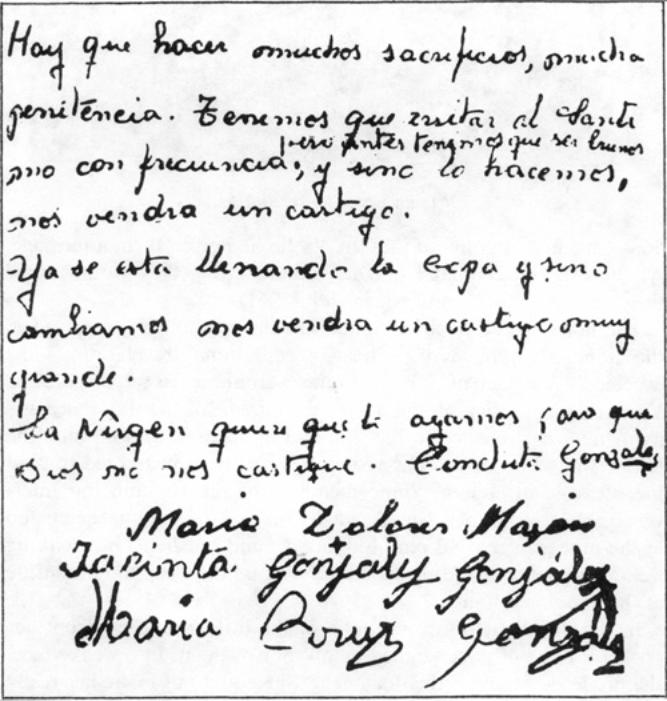 Hay que hacer muchos sacrificios, mucha
penitencia. Tenemos que visitar al Santi
pero antes tenemos que ser buenos
mo con frecuencia; y sino lo hacemos,
nos vendra un castigo.
Ya se esta llenando la copa y sino
cambiamos nos vendra un castigo muy
grande.
La Virgen quiere que agamos para que
Dios no nos castigue. Conchita Gonzalez
Maria Dolores Mazon
Jacinta Gonzalez Gonzalez
Maria Cruz Gonzalez